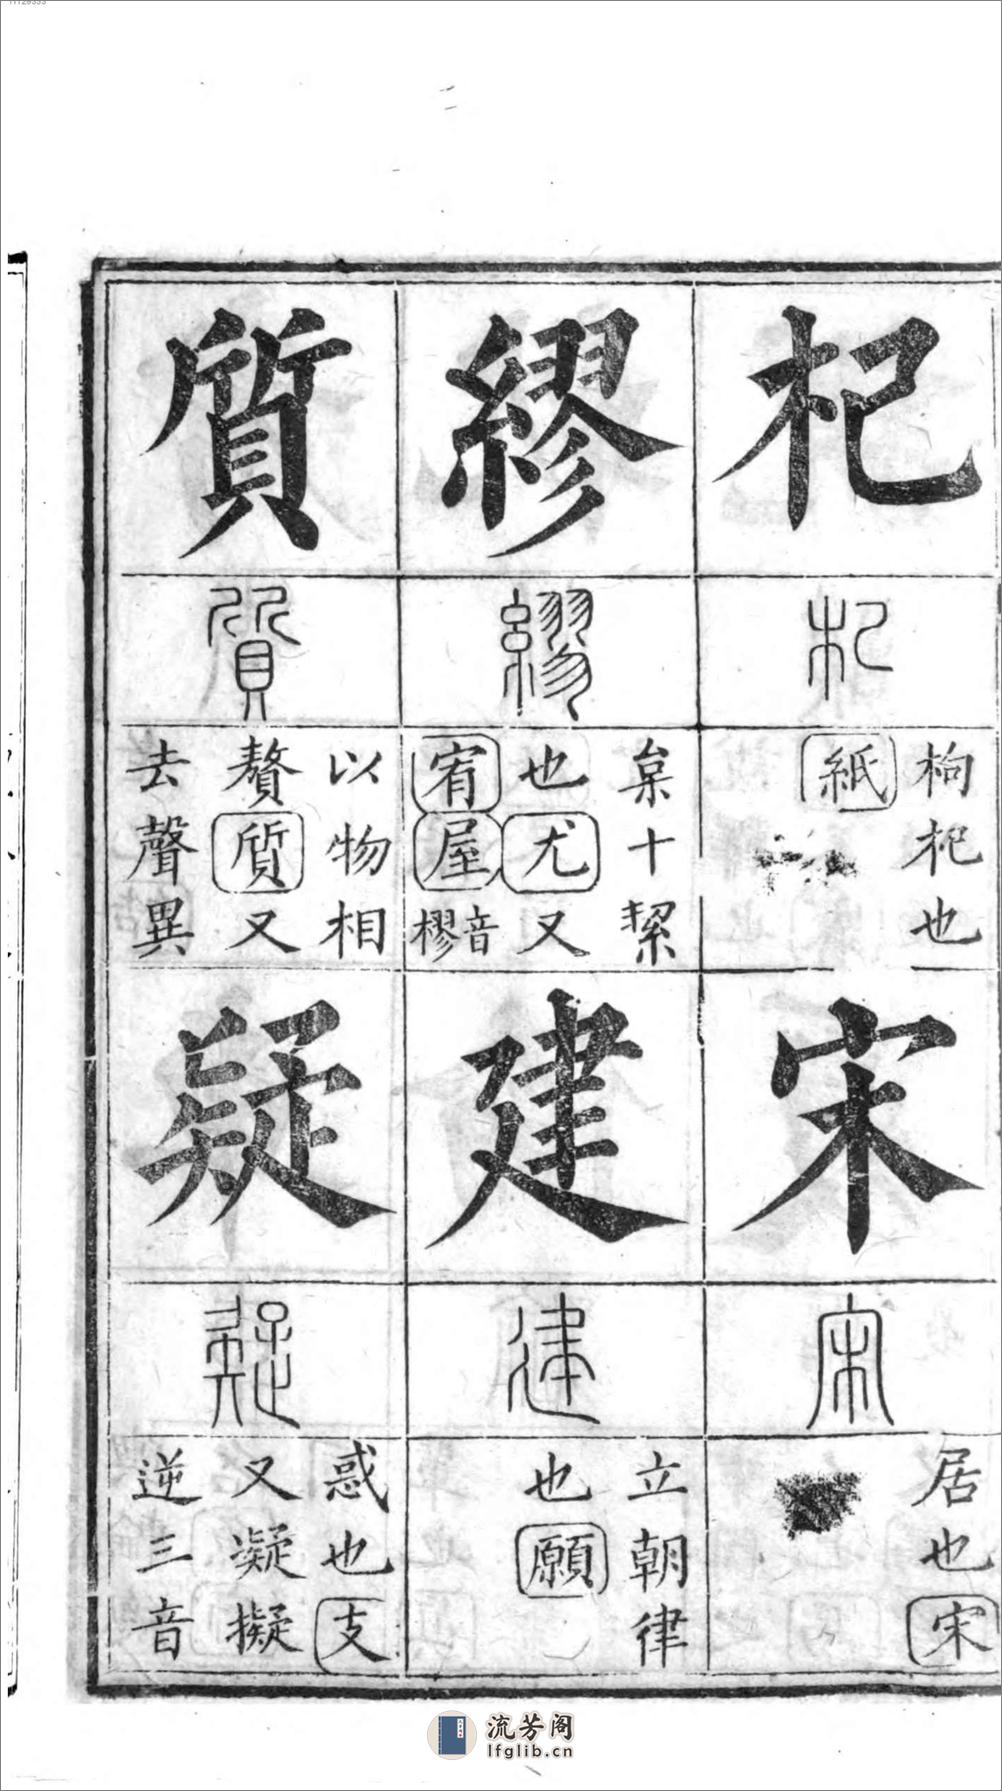 杞
杞
枸杞也
紙
宋
宋
居也宋
繆
繆
枲十絜
也尤又
宥屋樛音
建
建
立朝律
也願
質
質
以物相
贅質又
去聲異
疑
疑
惑也支
又凝擬
逆三音
流芳阁
lfglib.cn